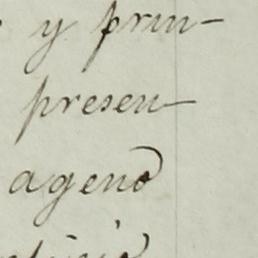 y prin-
presen-
ageno